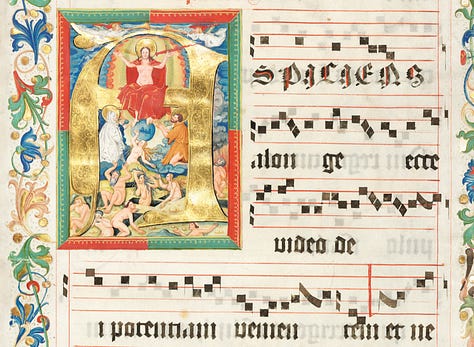 ASPICIENS
alon ge ecce
video de
i potentiam venien tem et ne